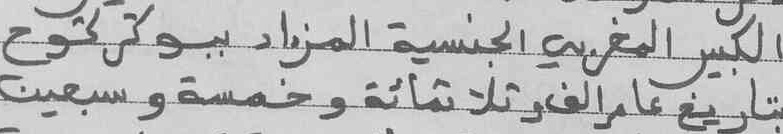 الكبير المغربي الجنسية المزداد ببوكركوح
بتاريخ عام الف وتلاتمائة وخمسة وسبعين